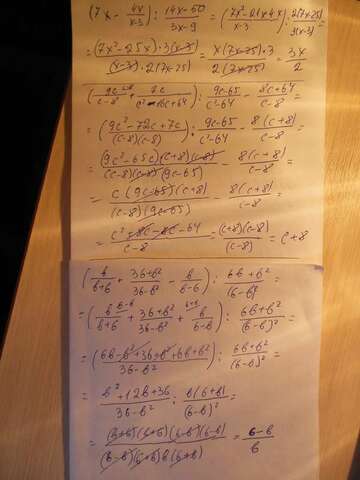 (7x - 4x/(x-3)) : (14x-50)/(3x-9) = ((7x²-21x-4x)/(x-3)) : 2(7x-25)/3(x-3) =
= (7x²-25x)·3(x-3)/((x-3)·2(7x-25)) = x(7x-25)·3/(2(7x-25)) = 3x/2
(9c/(c-8) + 7c/(c²-16c+64)) : (9c-65)/(c²-64) - (8c+64)/(c-8) =
= ((9c²-72c+7c)/((c-8)(c-8))) : (9c-65)/(c²-64) - 8(c+8)/(c-8) =
= (9c²-65c)(c+8)(c-8)/((c-8)(c-8)(9c-65)) - 8(c+8)/(c-8) =
= c(9c-65)(c+8)/((c-8)(9c-65)) - 8(c+8)/(c-8) =
= (c²+8c-8c-64)/(c-8) = (c+8)(c-8)/(c-8) = c+8
(b/(b+6) + (36+b²)/(36-b²) - b/(b-6)) : (6b+b²)/(6-b)² =
= (b/(b+6) + (36+b²)/(36-b²) + b/(6-b)) : (6b+b²)/(6-b)² =
= ((6b-b²+36+b²+6b+b²)/(36-b²)) : (6b+b²)/(6-b)² =
= (b²+12b+36)/(36-b²) : b(6+b)/(6-b)² =
= (b+6)(6+b)(6-b)(6-b)/((6-b)(6+b)b(6+b)) = (6-b)/b